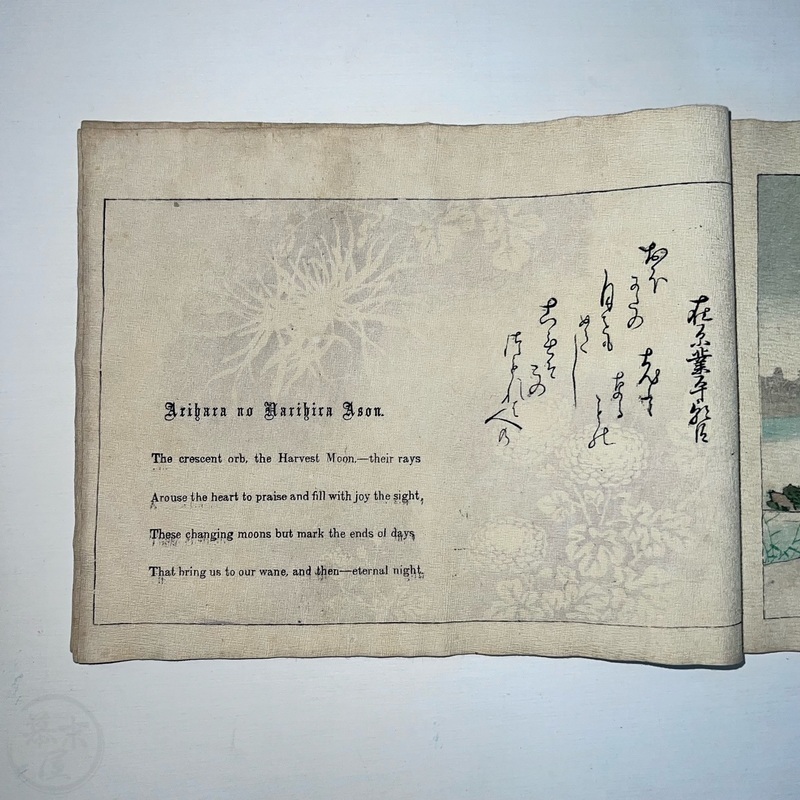 在原業平朝臣
おほ
かたは
月をも
めてし
これそ
この
つもれは
人の
老と
なる
もの
Arihara no Narihira Ason.
The crescent orb, the Harvest Moon,—their rays
Arouse the heart to praise and fill with joy the sight,
These changing moons but mark the ends of days
That bring us to our wane, and then—eternal night.